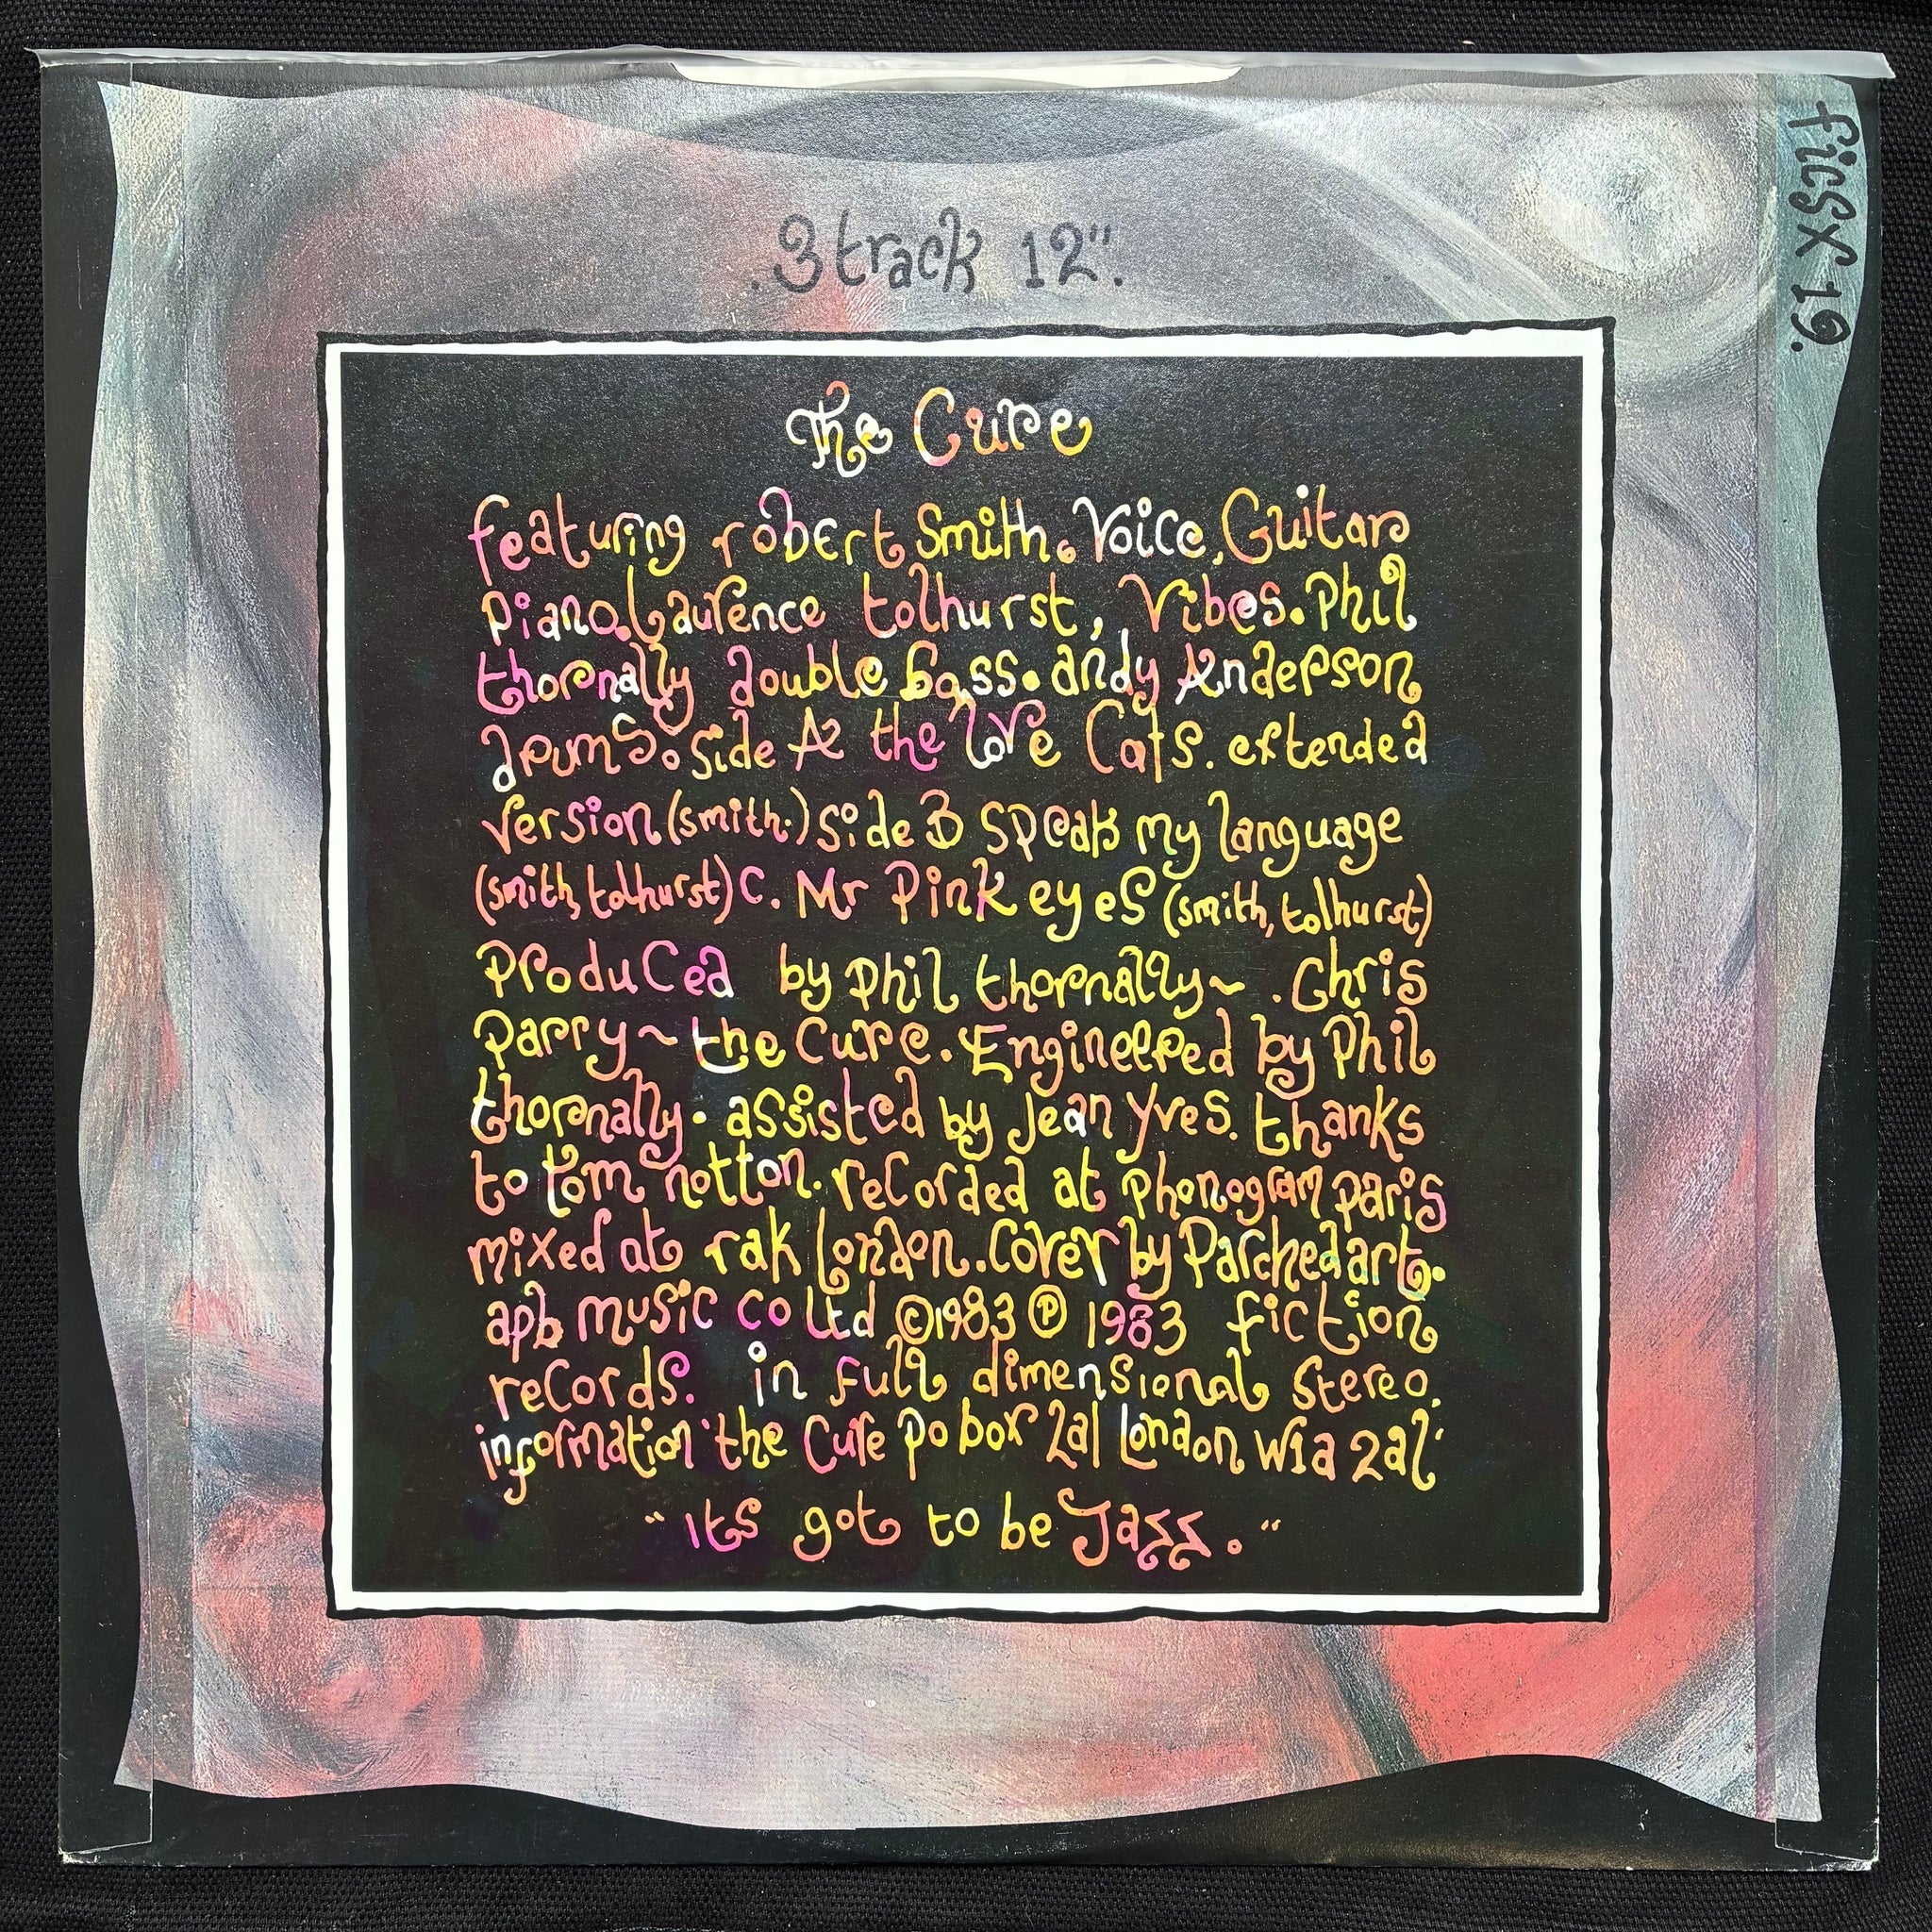 .3 track 12".
ficsx 19.
The Cure
featuring robert Smith. Voice, Guitar
piano. Laurence tolhurst, Vibes. Phil
thornally double bass. andy Anderson
drums. Side A the love Cats. extended
version (smith.) Side B speak my language
(smith, tolhurst) C. Mr Pink eyes (smith, tolhurst)
Produced by Phil thornally~ . Chris
Parry ~ the Cure. Engineered by Phil
thornally. assisted by Jean Yves. thanks
to tom notton. recorded at phonogram paris
mixed at rak london. Cover by Parched art.
apb music co ltd ©1983 ℗ 1983 fiction
records. in full dimensional stereo.
information 'the Cure po box 2al london w1a 2al'
"its got to be Jazz."